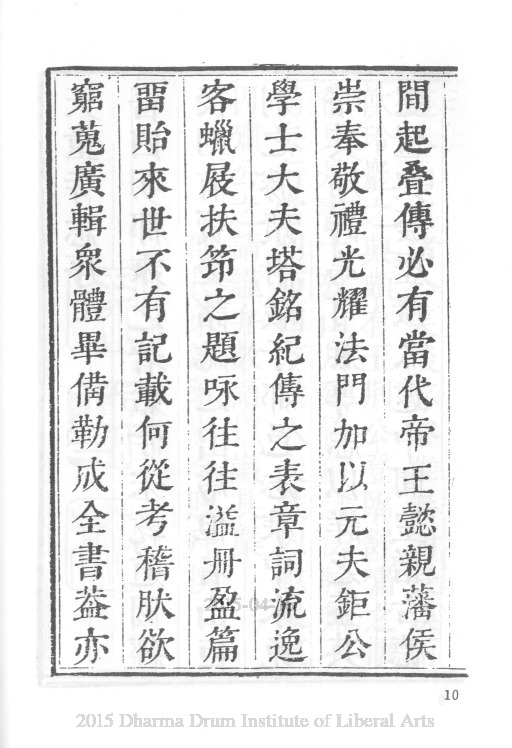 間起叠傳必有當代帝王懿親藩侯
崇奉敬禮光耀法門加以元夫鉅公
學士大夫塔銘紀傳之表章詞流逸
客蠟屐扶笻之題咏往往溢冊盈篇
畱貽來世不有記載何從考稽肰欲
窮蒐廣輯衆體畢備勒成全書葢亦
10
2015 Dharma Drum Institute of Liberal Arts